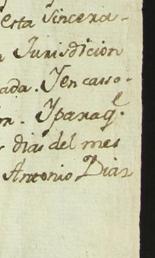 esta Sincera-
n Jurisdicion
ada. Yen casso-
n. Yparaq.e
s dias del mes
Antonio Dias